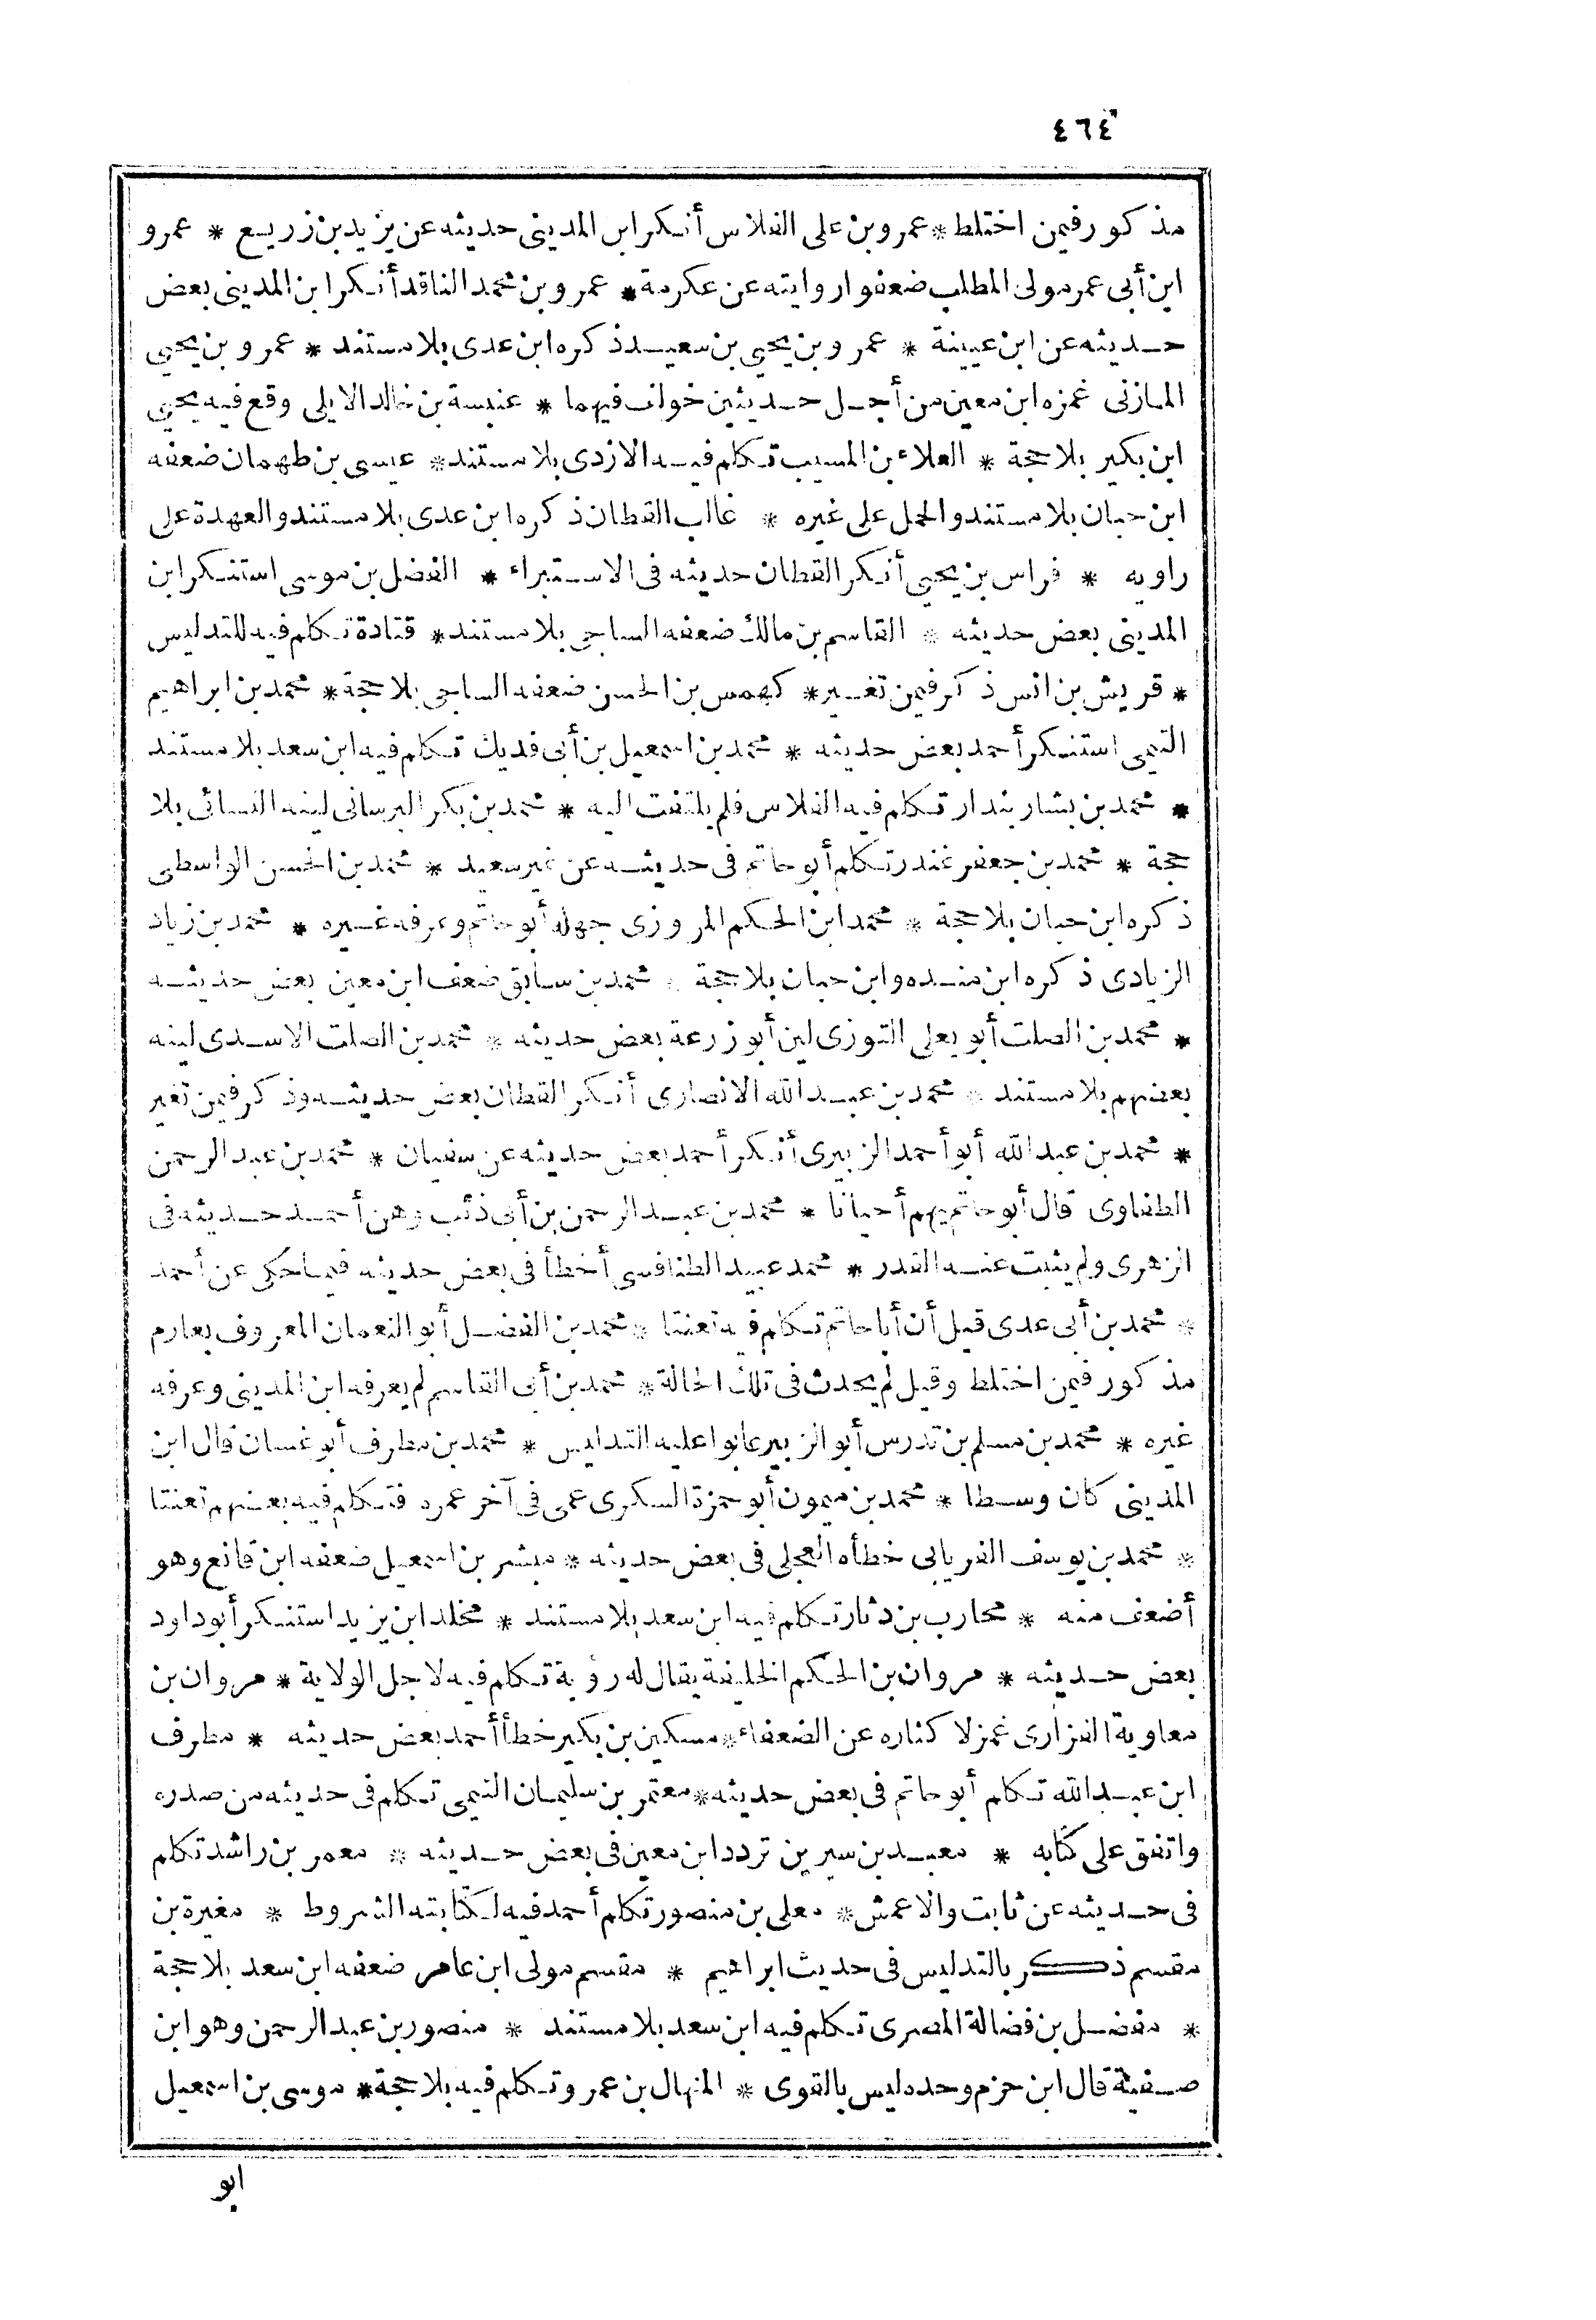 ٤٦٤
مذكور فيمن اختلط * عمرو بن على الفلاس أنكر ابن المدينى حديثه عن يزيد بن زريع * عمرو
ابن أبى عمر مولى المطلب ضعفوا روايته عن عكرمة * عمرو بن محمد الناقد أنكر ابن المدينى بعض
حديثه عن ابن عيينة * عمرو بن يحيى بن سعيد ذكره ابن عدى بلا مستند * عمرو بن يحيى
المازنى غمزه ابن معين من أجل حديثين خولف فيهما * عنبسة بن خالد الايلى وقع فيه يحيى
ابن بكير بلا حجة * العلاء بن المسيب تكلم فيه الازدى بلا مستند * عيسى بن طهمان ضعفه
ابن حبان بلا مستند والحمل على غيره * غالب القطان ذكره ابن عدى بلا مستند والعهدة على
راويه * فراس بن يحيى أنكر القطان حديثه فى الاستبراء * الفضل بن موسى استنكر ابن
المدينى بعض حديثه * القاسم بن مالك ضعفه الساجى بلا مستند * قتادة تكلم فيه للتدليس
* قريش بن انس ذكر فيمن تغير * كهمس بن الحسن ضعفه الساجى بلا حجة * محمد بن ابراهيم
التيمى استنكر أحمد بعض حديثه * محمد بن اسمعيل بن أبى فديك تكلم فيه ابن سعد بلا مستند
* محمد بن بشار بندار تكلم فيه الفلاس فلم يلتفت اليه * محمد بن بكر البرسانى لينه النسائى بلا
حجة * محمد بن جعفر غندر تكلم أبو حاتم فى حديثه عن غير سعيد * محمد بن الحسن الواسطى
ذكره ابن حبان بلا حجة * محمد ابن الحكم المروزى جهله أبو حاتم وعرفه غيره * محمد بن زياد
الزيادى ذكره ابن منده وابن حبان بلا حجة * محمد بن سابق ضعف ابن معين بعض حديثه
* محمد بن الصلت أبو يعلى التوزى لين أبو زرعة بعض حديثه * محمد بن الصلت الاسدى لينه
بعضهم بلا مستند * محمد بن عبد الله الانصارى أنكر القطان بعض حديثه وذكر فيمن تغير
* محمد بن عبد الله أبو أحمد الزبيرى أنكر أحمد بعض حديثه عن سفيان * محمد بن عبد الرحمن
الطفاوى قال أبو حاتم يهم أحيانا * محمد بن عبد الرحمن بن أبى ذئب وهن أحمد حديثه فى
الزهرى ولم يثبت عنه القدر * محمد عبيد الطنافسى أخطأ فى بعض حديثه فيما حكى عن أحمد
* محمد بن أبى عدى قيل أن أبا حاتم تكلم فيه تعنتا * محمد بن الفضل أبو النعمان المعروف بعارم
مذكور فيمن اختلط وقيل لم يحدث فى تلك الحالة * محمد بن أبى القاسم لم يعرفه ابن المدينى وعرفه
غيره * محمد بن مسلم بن تدرس أبو الزبير عابوا عليه التدليس * محمد بن مطرف أبو غسان قال ابن
المدينى كان وسطا * محمد بن ميمون أبو حمزة السكرى عمى فى آخر عمره فتكلم فيه بعضهم تعنتا
* محمد بن يوسف الفريابى خطأه العجلى فى بعض حديثه * مبشر بن اسمعيل ضعفه ابن قانع وهو
أضعف منه * محارب بن دثار تكلم فيه ابن سعد بلا مستند * مخلد ابن يزيد استنكر أبو داود
بعض حديثه * مروان بن الحكم الخليفة يقال له رؤية تكلم فيه لاجل الولاية * مروان بن
معاوية الفزارى غمز لاكثاره عن الضعفاء * مسكين بن بكير خطأ أحمد بعض حديثه * مطرف
ابن عبد الله تكلم أبو حاتم فى بعض حديثه * معتمر بن سليمان التيمى تكلم فى حديثه من صدره
واتفق على كتابه * معبد بن سيرين تردد ابن معين فى بعض حديثه * معمر بن راشد تكلم
فى حديثه عن ثابت والاعمش * معلى بن منصور تكلم أحمد فيه لكتابته الشروط * مغيرة بن
مقسم ذكر بالتدليس فى حديث ابراهيم * مقسم مولى ابن عامر ضعفه ابن سعد بلا حجة
* مفضل بن فضالة المصرى تكلم فيه ابن سعد بلا مستند * منصور بن عبد الرحمن وهو ابن
صفية قال ابن حزم وحده ليس بالقوى * المنهال بن عمرو تكلم فيه بلا حجة * موسى بن اسمعيل
ابو